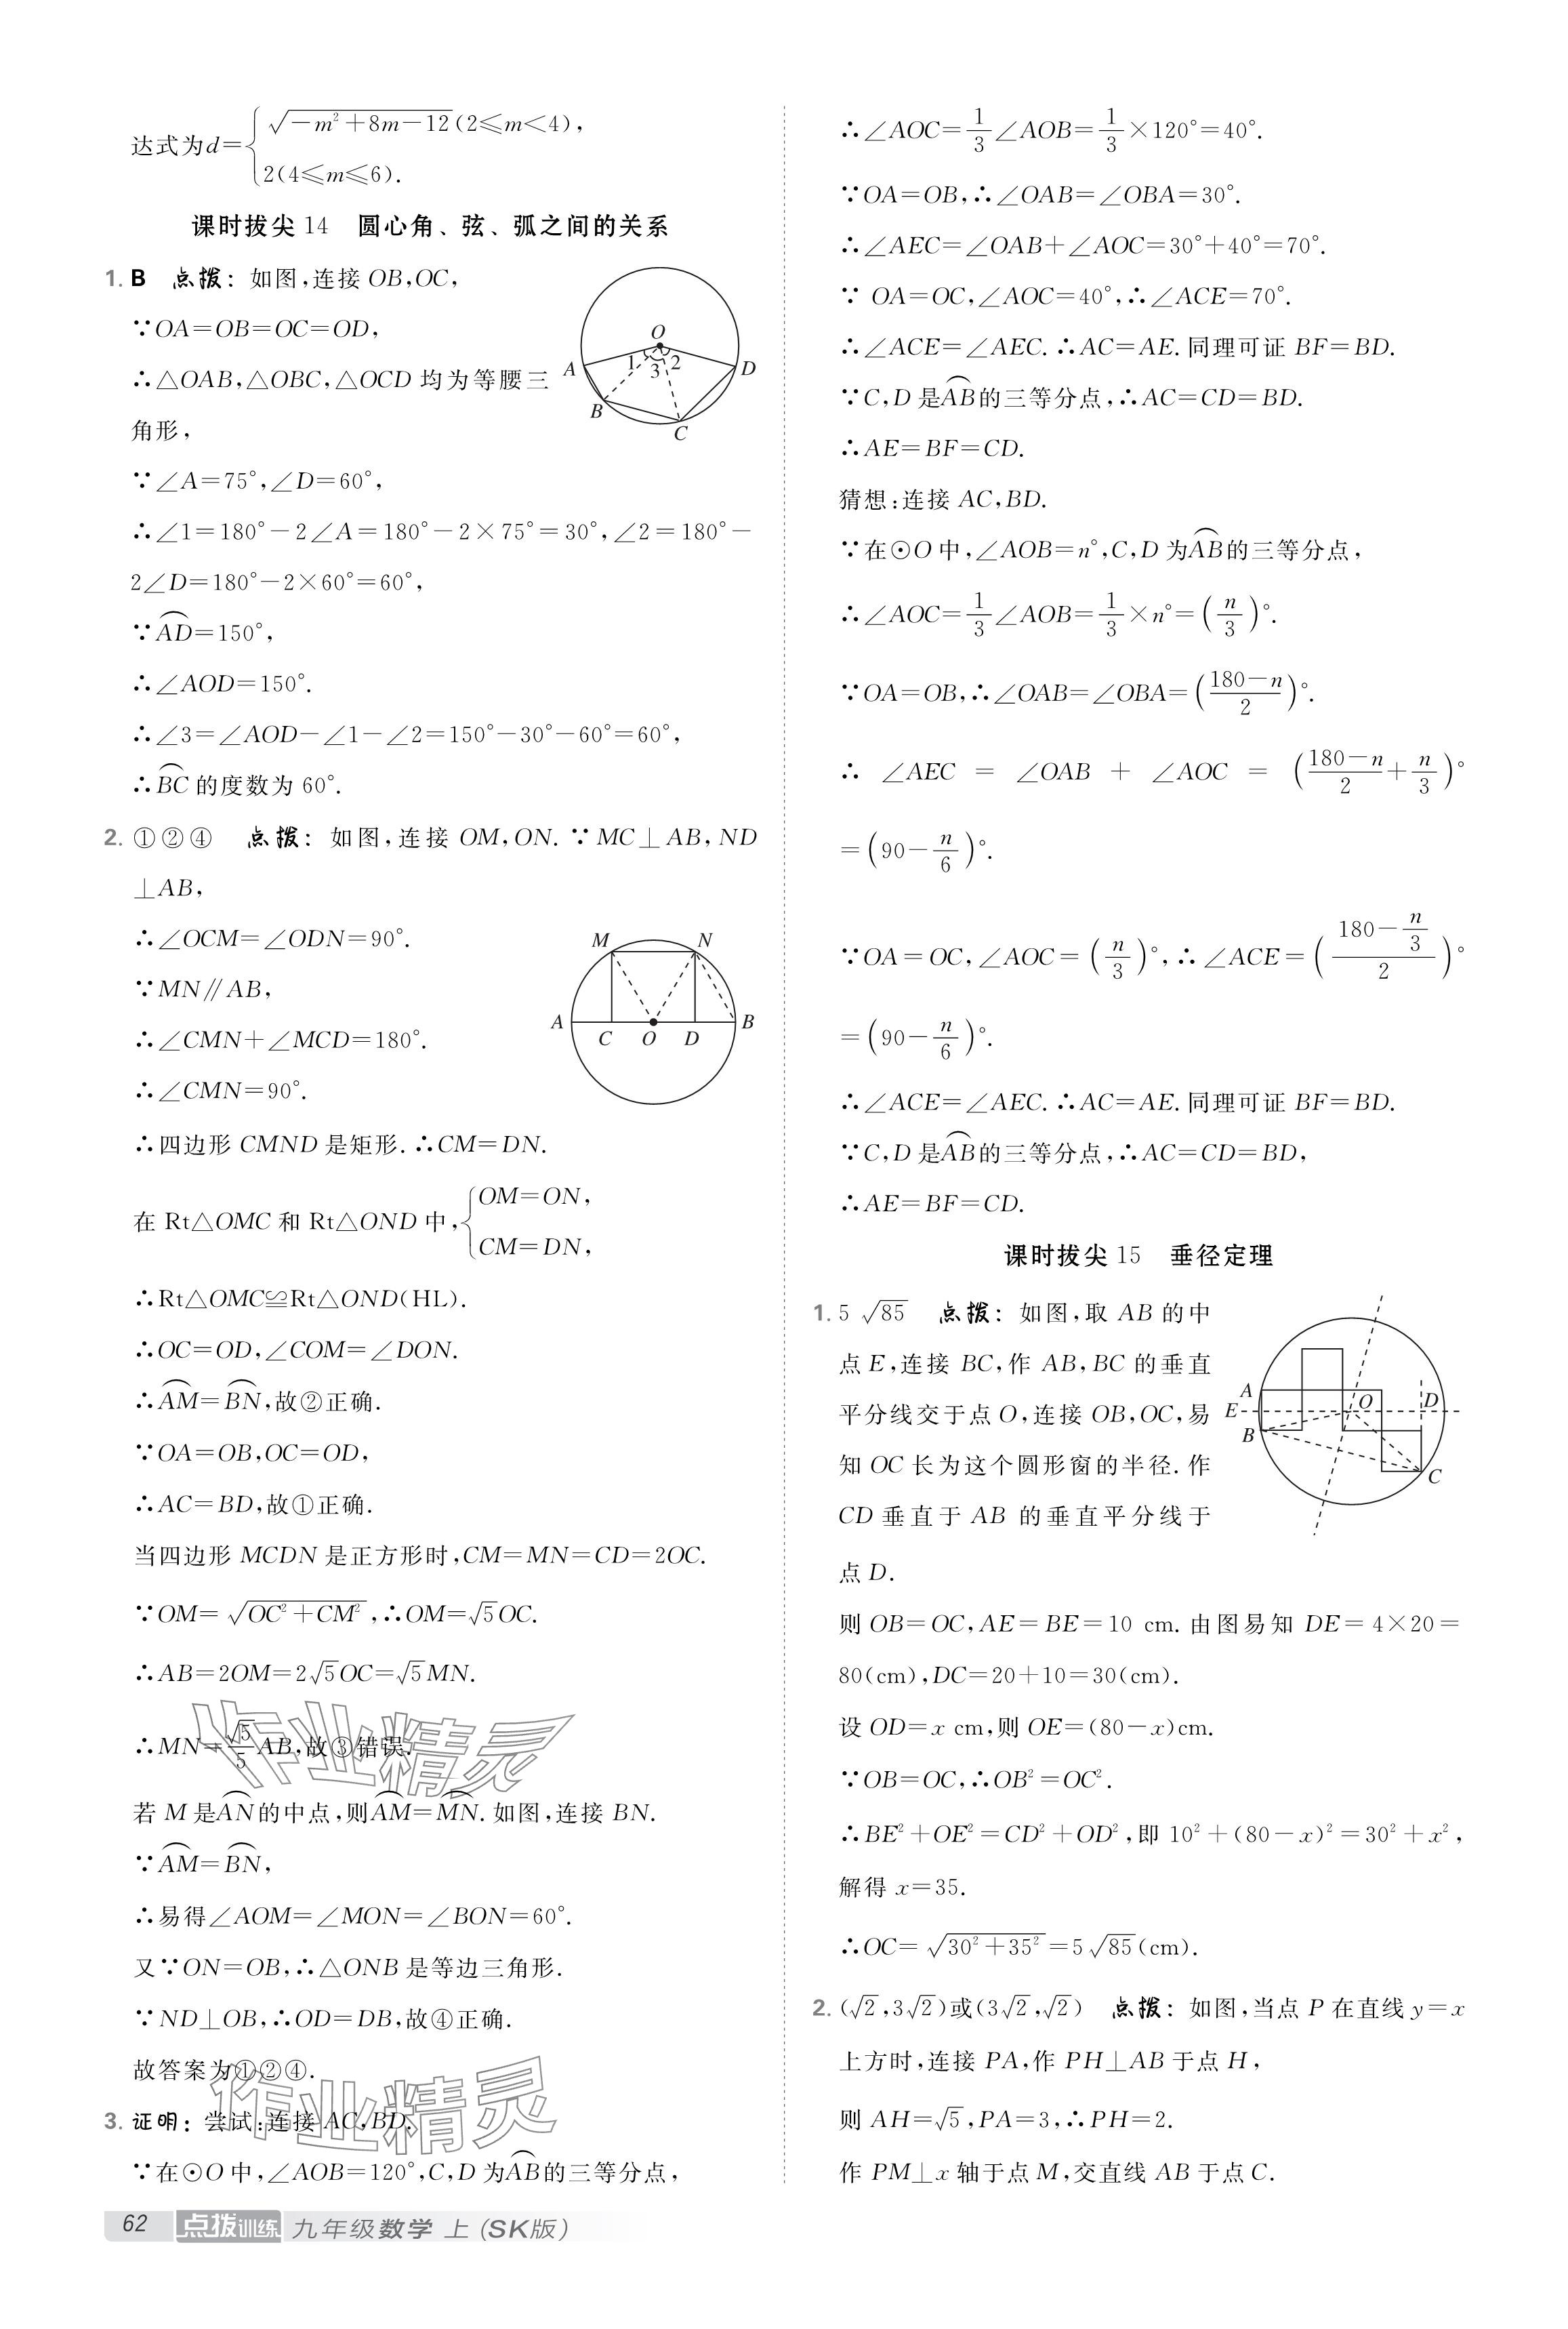 达式为d={√(-m²+8m-12)(2≤m<4),
2(4≤m≤6).
课时拔尖 14 圆心角、弦、弧之间的关系
1. B 点拨：如图,连接 OB,OC,
∵OA=OB=OC=OD,
∴△OAB,△OBC,△OCD 均为等腰三
角形,
∵∠A=75°,∠D=60°,
∴∠1=180°-2∠A=180°-2×75°=30°,∠2=180°-
2∠D=180°-2×60°=60°,
∵⌒AD=150°,
∴∠AOD=150°.
∴∠3=∠AOD-∠1-∠2=150°-30°-60°=60°,
∴⌒BC 的度数为 60°.
O
1
2
3
A
D
B
C
2. ①②④ 点拨：如图,连接 OM,ON. ∵MC⊥AB,ND
⊥AB,
∴∠OCM=∠ODN=90°.
∵MN∥AB,
∴∠CMN+∠MCD=180°.
∴∠CMN=90°.
∴四边形 CMND 是矩形. ∴CM=DN.
M
N
A
B
C
O
D
在 Rt△OMC 和 Rt△OND 中,{OM=ON,
CM=DN,
∴Rt△OMC≌Rt△OND(HL).
∴OC=OD,∠COM=∠DON.
∴⌒AM=⌒BN,故②正确.
∵OA=OB,OC=OD,
∴AC=BD,故①正确.
当四边形 MCDN 是正方形时,CM=MN=CD=2OC.
∵OM=√(OC²+CM²),∴OM=√5OC.
∴AB=2OM=2√5OC=√5MN.
∴MN=√5/5 AB,故③错误.
若 M 是⌒AN的中点,则⌒AM=⌒MN. 如图,连接 BN.
∵⌒AM=⌒BN,
∴易得∠AOM=∠MON=∠BON=60°.
又∵ON=OB,∴△ONB 是等边三角形.
∵ND⊥OB,∴OD=DB,故④正确.
故答案为①②④.
3. 证明：尝试:连接 AC,BD.
∵在⊙O 中,∠AOB=120°,C,D 为⌒AB的三等分点,
作业精灵
作业精灵
∴∠AOC=1/3∠AOB=1/3×120°=40°.
∵OA=OB,∴∠OAB=∠OBA=30°.
∴∠AEC=∠OAB+∠AOC=30°+40°=70°.
∵ OA=OC,∠AOC=40°,∴∠ACE=70°.
∴∠ACE=∠AEC. ∴AC=AE. 同理可证 BF=BD.
∵C,D 是⌒AB的三等分点,∴AC=CD=BD.
∴AE=BF=CD.
猜想:连接 AC,BD.
∵在⊙O 中,∠AOB=n°,C,D 为⌒AB的三等分点,
∴∠AOC=1/3∠AOB=1/3×n°=(n/3)°.
∵OA=OB,∴∠OAB=∠OBA=((180-n)/2)°.
∴ ∠AEC = ∠OAB + ∠AOC = ((180-n)/2+n/3)°
=(90-n/6)°.
∵OA=OC,∠AOC=(n/3)°,∴∠ACE=((180-n/3)/2)°
=(90-n/6)°.
∴∠ACE=∠AEC. ∴AC=AE. 同理可证 BF=BD.
∵C,D 是⌒AB的三等分点,∴AC=CD=BD,
∴AE=BF=CD.
课时拔尖 15 垂径定理
1. 5√85 点拨：如图,取 AB 的中
点 E,连接 BC,作 AB,BC 的垂直
平分线交于点 O,连接 OB,OC,易
知 OC 长为这个圆形窗的半径. 作
CD 垂直于 AB 的垂直平分线于
点 D.
A
E
B
O
D
C
则 OB=OC,AE=BE=10 cm. 由图易知 DE=4×20=
80(cm),DC=20+10=30(cm).
设 OD=x cm,则 OE=(80-x)cm.
∵OB=OC,∴OB²=OC².
∴BE²+OE²=CD²+OD²,即 10²+(80-x)²=30²+x²,
解得 x=35.
∴OC=√(30²+35²)=5√85(cm).
2. (√2,3√2)或(3√2,√2) 点拨：如图,当点 P 在直线 y=x
上方时,连接 PA,作 PH⊥AB 于点 H,
则 AH=√5,PA=3,∴PH=2.
作 PM⊥x 轴于点 M,交直线 AB 于点 C.
62 点拨训练 九年级数学 上 (SK版)